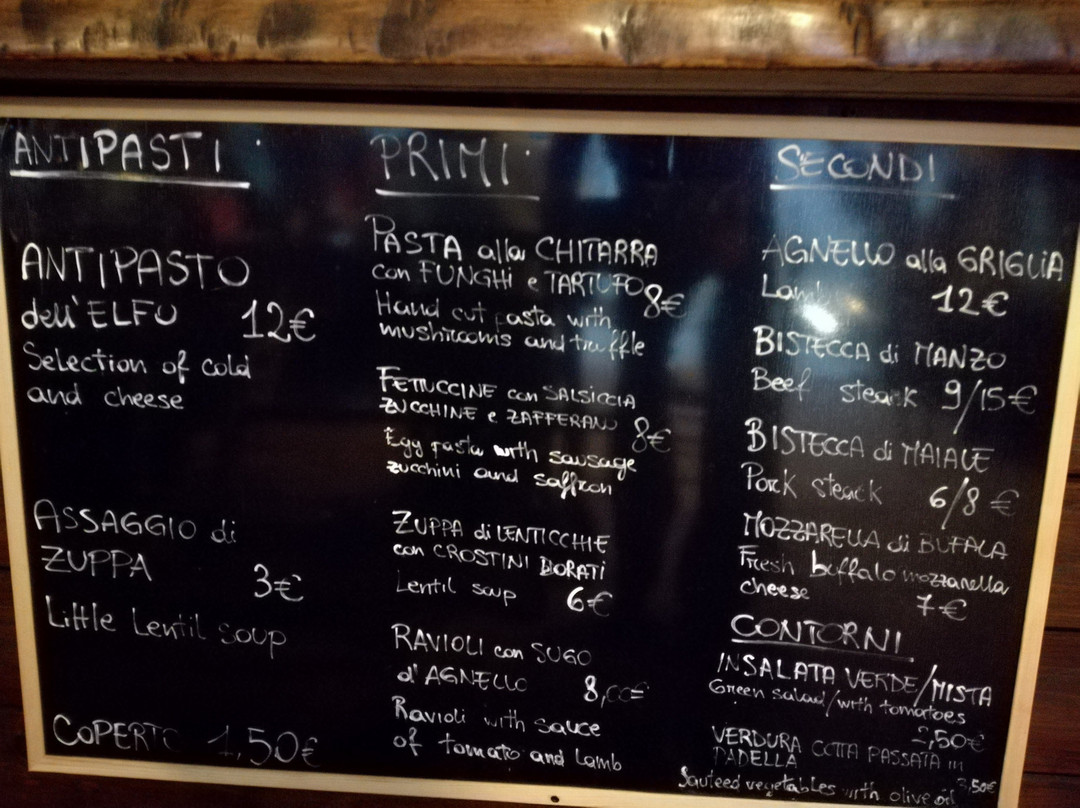 ANTIPASTI
ANTIPASTO
dell'ELFO 12€
Selection of cold
and cheese
ASSAGGIO di
ZUPPA
3€
Little Lentil soup
COPERTO 1,50€
PRIMI
PASTA alla CHITARRA
con FUNGHI e TARTUFO 8€
Hand cut pasta with
mushrooms and truffle
FETTUCCINE con SALSICCIA
ZUCCHINE e ZAFFERANO 8€
Egg pasta with sausage
zucchini and saffron
ZUPPA di LENTICCHIE
con CROSTINI DORATI
Lentil soup 6€
RAVIOLI con SUGO
d'AGNELLO 8,00€
Ravioli with sauce
of tomato and lamb
SECONDI
AGNELLO alla GRIGLIA
Lamb 12€
BISTECCA di MANZO
Beef steack 9/15€
BISTECCA di MAIALE
Pork steack 6/8 €
MOZZARELLA di BUFALA
Fresh buffalo mozzanella
cheese 7€
CONTORNI
INSALATA VERDE/MISTA
Green salad/with tomatoes
2,50€
VERDURA COTTA PASSATA in
PADELLA
Sauteed vegetables with olive oil 3,50€